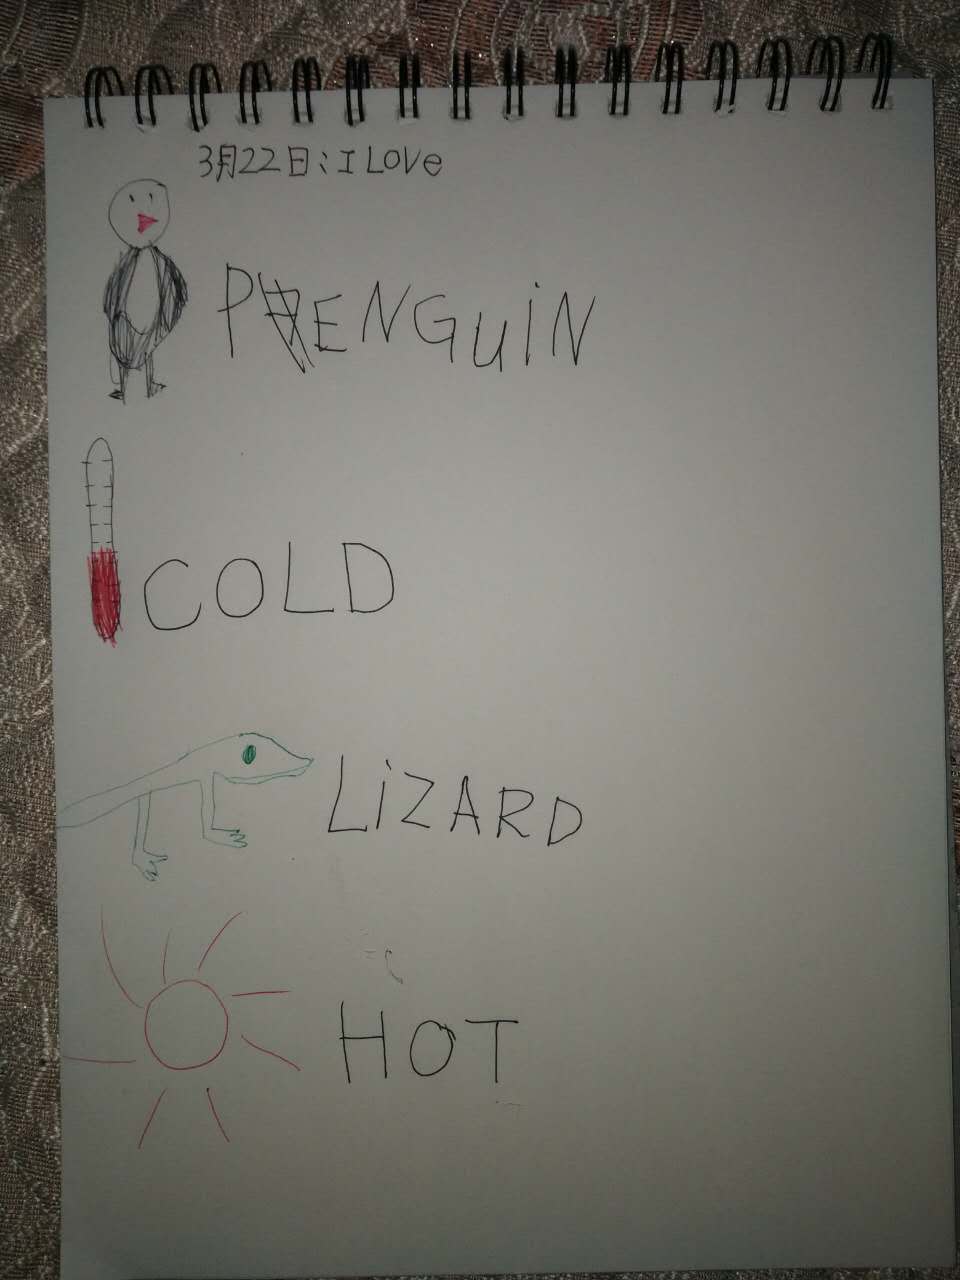 3月22日: I LOVe
PENGUiN
COLD
LiZARD
HOT